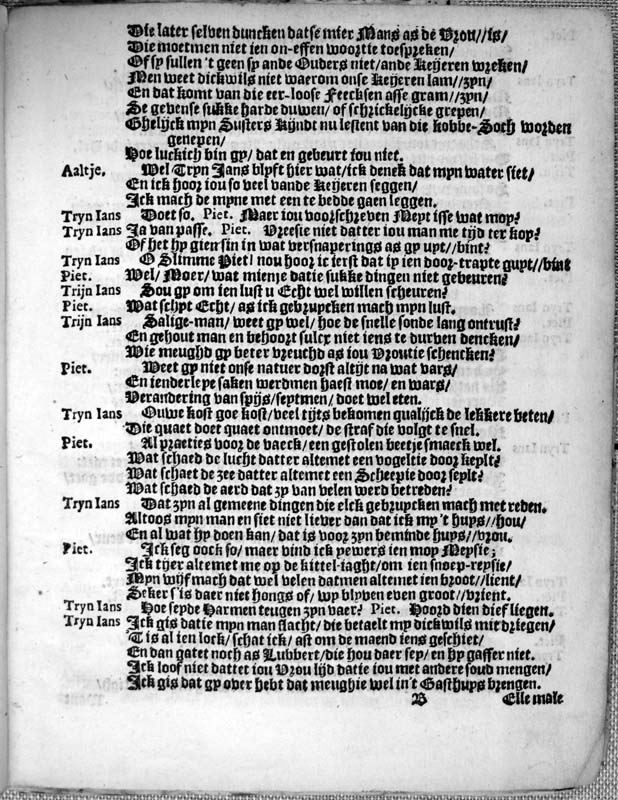 Die later selven duncken datse mier Mans as de Vrou//is/
Die moetmen niet ien on-effen woortie toespreken/
Of sy sullen 't geen sy ande Ouders niet/ande Keyeren wreken/
Men weet dickwils niet waerom onse Keyeren lam//zyn/
En dat komt van die eer-loose Feecksen asse gram//zyn/
Se gevense sukke harde duwen/ of schrickelijcke grepen/
Ghelijck myn Susters Kijndt nu lestent van die kobbe-Soch worden
genepen/
Hoe luckich bin gy/ dat en gebeurt iou niet.
Aaltje. Wel Tryn Jans blyft hier wat/ick denck dat myn water siet/
En ick hoor iou so veel vande Keyeren seggen/
Ick mach de myne met een te bedde gaen leggen.
Tryn Ians Doet so. Piet. Maer iou voorschreven Meyt isse wat moy?
Tryn Ians Ja van passe. Piet. Vreesie niet datter iou man me tijd ter koy?
Of het hy giensin in wat versnaperings as gy uyt//bint?
Tryn Ians O Slimme Piet! nou hoor ic ierst dat iy ien door-trapte guyt//bint
Piet. Wel/ Moer/ wat mienje datie sukke dingen niet gebeuren?
Trijn Ians Sou gy om ien lust u Echt wel willen scheuren?
Piet. Wat schyt Echt/ as ick gebruycken mach myn lust.
Trijn Ians Salige-man/ weet gy wel/ hoe de snelle sonde lang ontrust?
En gehout man en behoort sulcx niet iens te durven dencken/
Wie meughd gy beter vreuchd as iou Vroutie schencken?
Piet. Weet gy niet onse natuer dorst altijt na wat vars/
En ienderleye saken werdmen haest moe/ en wars/
Verandering van spijs/seytmen/ doet wel eten.
Tryn Ians Ouwe kost goe kost/veel tijts bekomen qualijck de lekkere beten/
Die quaet doet quaet ontmoet/ de straf die volgt te snel.
Piet. Al praeties voor de vaeck/een gestolen beetje smaeck wel.
Wat schaed de lucht datter altemet een vogeltie door keylt?
Wat schaet de zee datter altemet een Scheepie door seylt?
Wat schaed de aerd dat zy van velen werd betreden?
Tryn Ians Dat zyn al gemeene dingen die elck gebruycken mach met reden.
Altoos myn man en siet niet liever dan dat ick my 't huys//hou/
En al wat hy doen kan/ dat is voor zyn beminde huys//vrou.
Piet. Ick seg oock so/ maer vind ick yewers ien moy Meysie;
Ick tijer altemet me op de kittel-iaght/om ien snoep-reysie/
Myn wijf mach dat wel velen datmen altemet ien broot//lient/
Seker s'is daer niet hongs of/ wy blyven even groot//vrient.
Tryn Ians Hoe seyde Harmen teugen zyn vaer? Piet. Hoord dien dief liegen.
Tryn Ians Ick gis datie myn man slacht/ die betaelt my dickwils mit driegen/
T is al ien lock/ schat ick/ ast om de maend iens geschiet/
En dan gatet noch as Lubbert/die hou daer sey/ en hy gaffer niet.
Ick loof niet dattet iou Vrou lijd datie iou met andere soud mengen/
Ick gis dat gy over hebt dat meughie wel in't Gasthuys brengen.
B Elle male